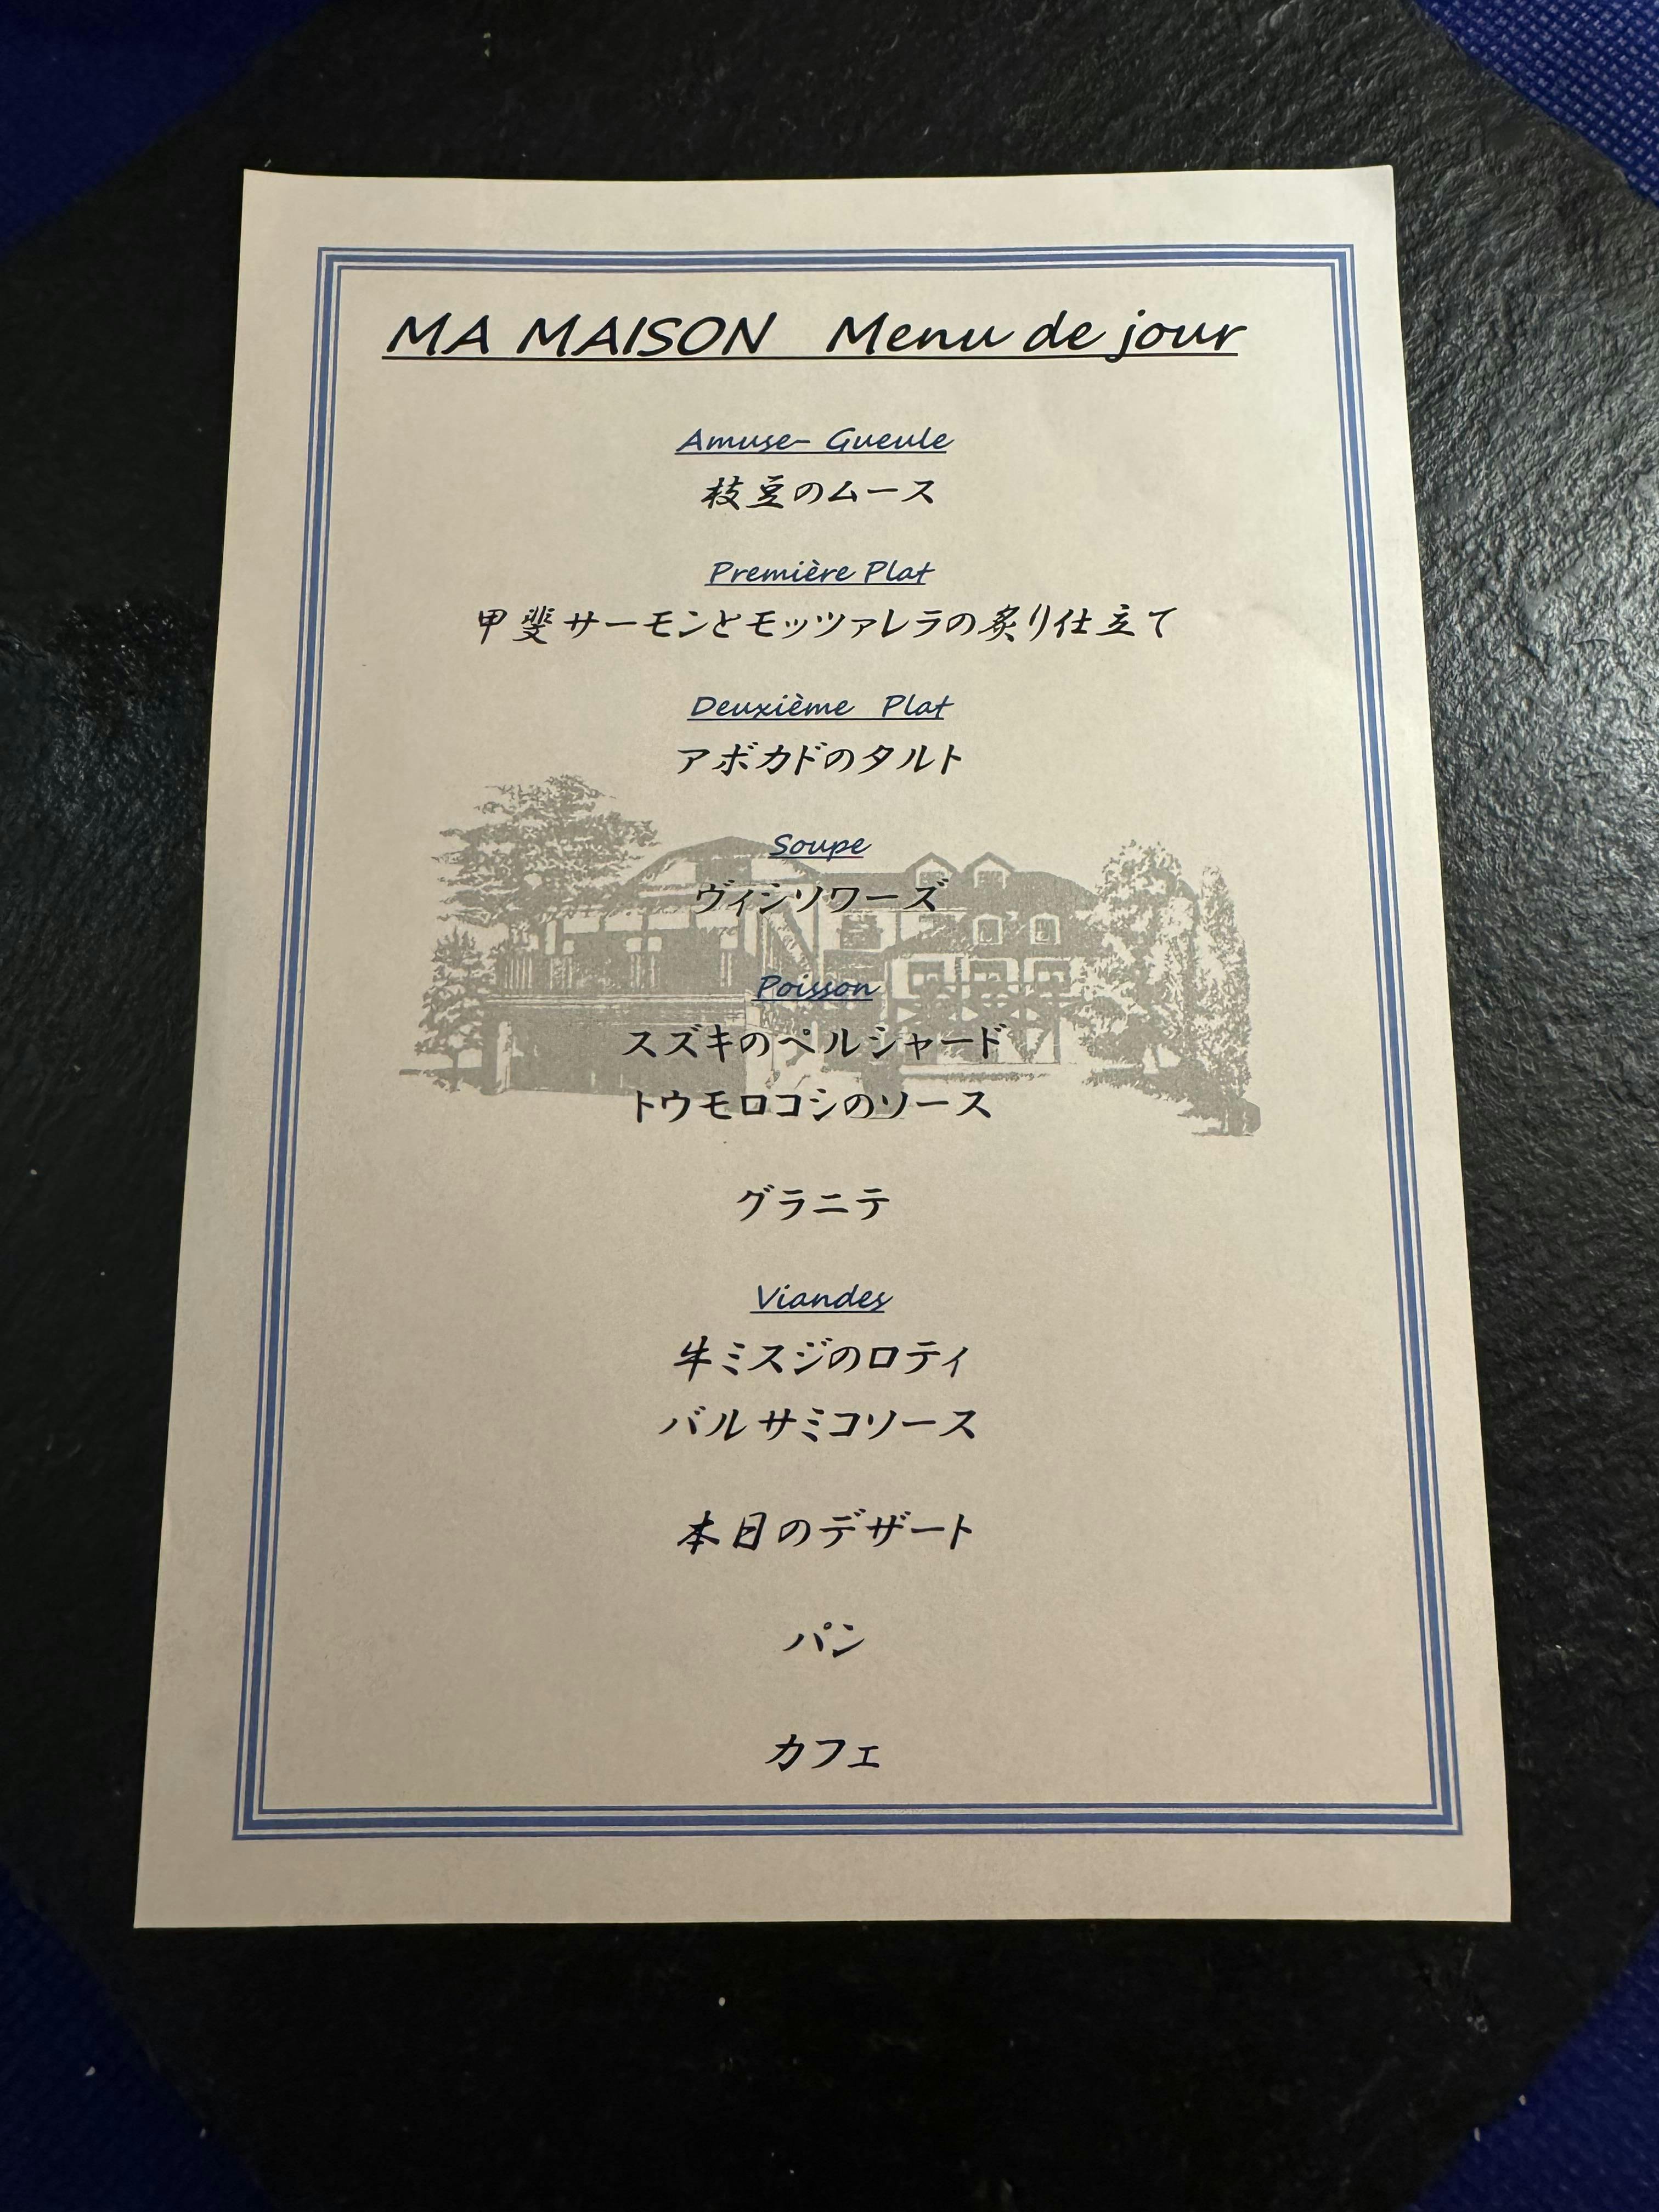 MA MAISON Menu de jour
Amuse- Gueule
枝豆のムース
Première Plat
甲斐サーモンとモッツァレラの炙り仕立て
Deuxième Plat
アボカドのタルト
Soupe
ヴィシソワーズ
Poisson
スズキのペルシャード
トウモロコシのソース
グラニテ
Viandes
牛ミスジのロティ
バルサミコソース
本日のデザート
パン
カフェ